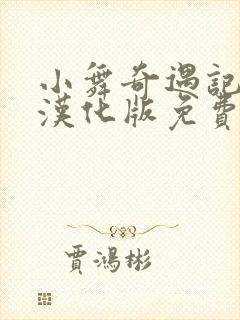 小舞奇遇記
漢化版免費
賈鴻彬